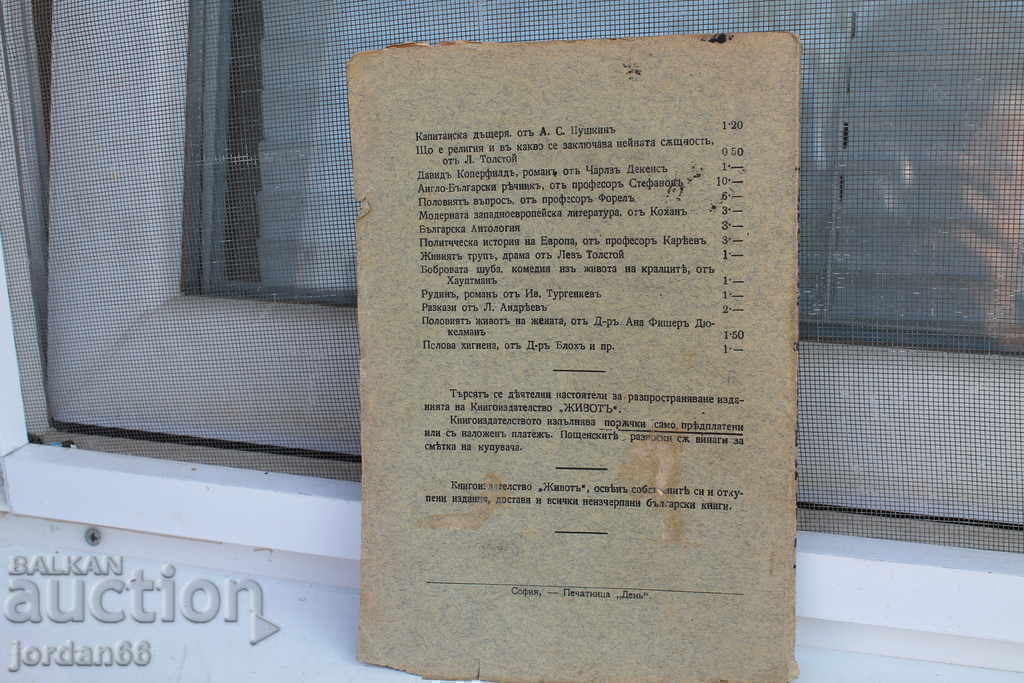 Капитанска дъщеря, отъ А. С. Пушкинъ 1·20
Що е религия и въ какво се заключава нейната сѫщность,
отъ Л. Толстой 0·50
Давидъ Коперфилдъ, романъ отъ Чарлзъ Декенсъ 1·—
Англо-Български рѣчникъ, отъ професоръ Стефановъ 10·—
Половиятъ въпросъ, отъ професоръ Форелъ 6·—
Модерната западноевропейска литература, отъ Коханъ 3·—
Българска Антология 3·—
Политическа история на Европа, отъ професоръ Карѣевъ 3·—
Живиятъ трупъ, драма отъ Левъ Толстой 1·—
Бобровата шуба, комедия изъ живота на кралцитѣ, отъ
Хауптманъ 1·—
Рудинъ, романъ отъ Ив. Тургеневъ 1·—
Разкази отъ Л. Андрѣевъ 2·—
Половиятъ животъ на жената, отъ Д-ръ Ана Фишеръ Дю-
келманъ 1·50
Полова хигиена, отъ Д-ръ Блохъ и пр. 1·—
Търсятъ се дѣятелни настоятели за разпространяване изда-
нията на Книгоиздателство „ЖИВОТЪ“.
Книгоиздателството изпълнява порѫчки само прѣдплатени
или съ наложенъ платежъ. Пощенскитѣ разноски сѫ винаги за
смѣтка на купувача.
Книгоиздателство „Животъ“, освѣнъ собственитѣ си и отку-
пени издания, доставя и всички неизчерпани български книги.
София, — Печатница „День“.
BALKAN
auction
jordan66